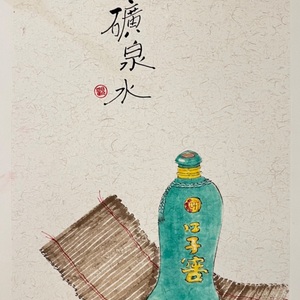 礦泉水
口子窖